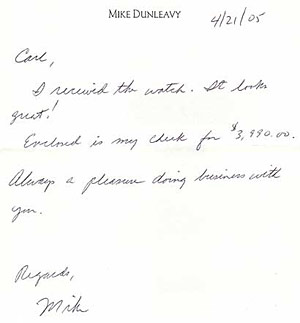 MIKE DUNLEAVY
4/21/05
Carl,
I received the watch. It looks
great!
Enclosed is my check for $3,990.00.
Always a pleasure doing business with
you.
Regards,
Mike